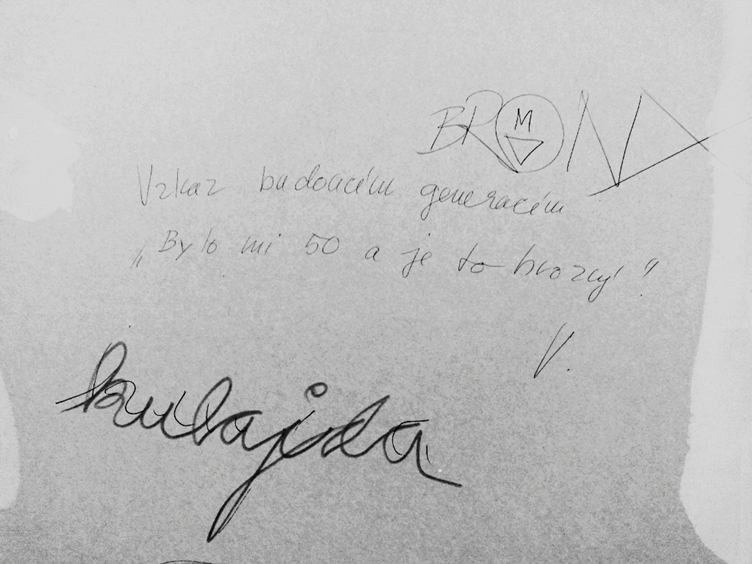 BROND
M
Vzkaz budoucím generacím
„Bylo mi 50 a je to hrozný“
V.
kulajda